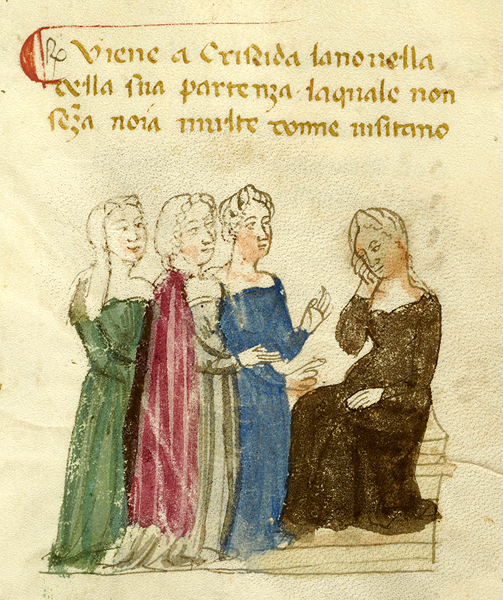 Viene a Criseida la nouella
della sua partenza laquale non
seza noia multe donne uisitano